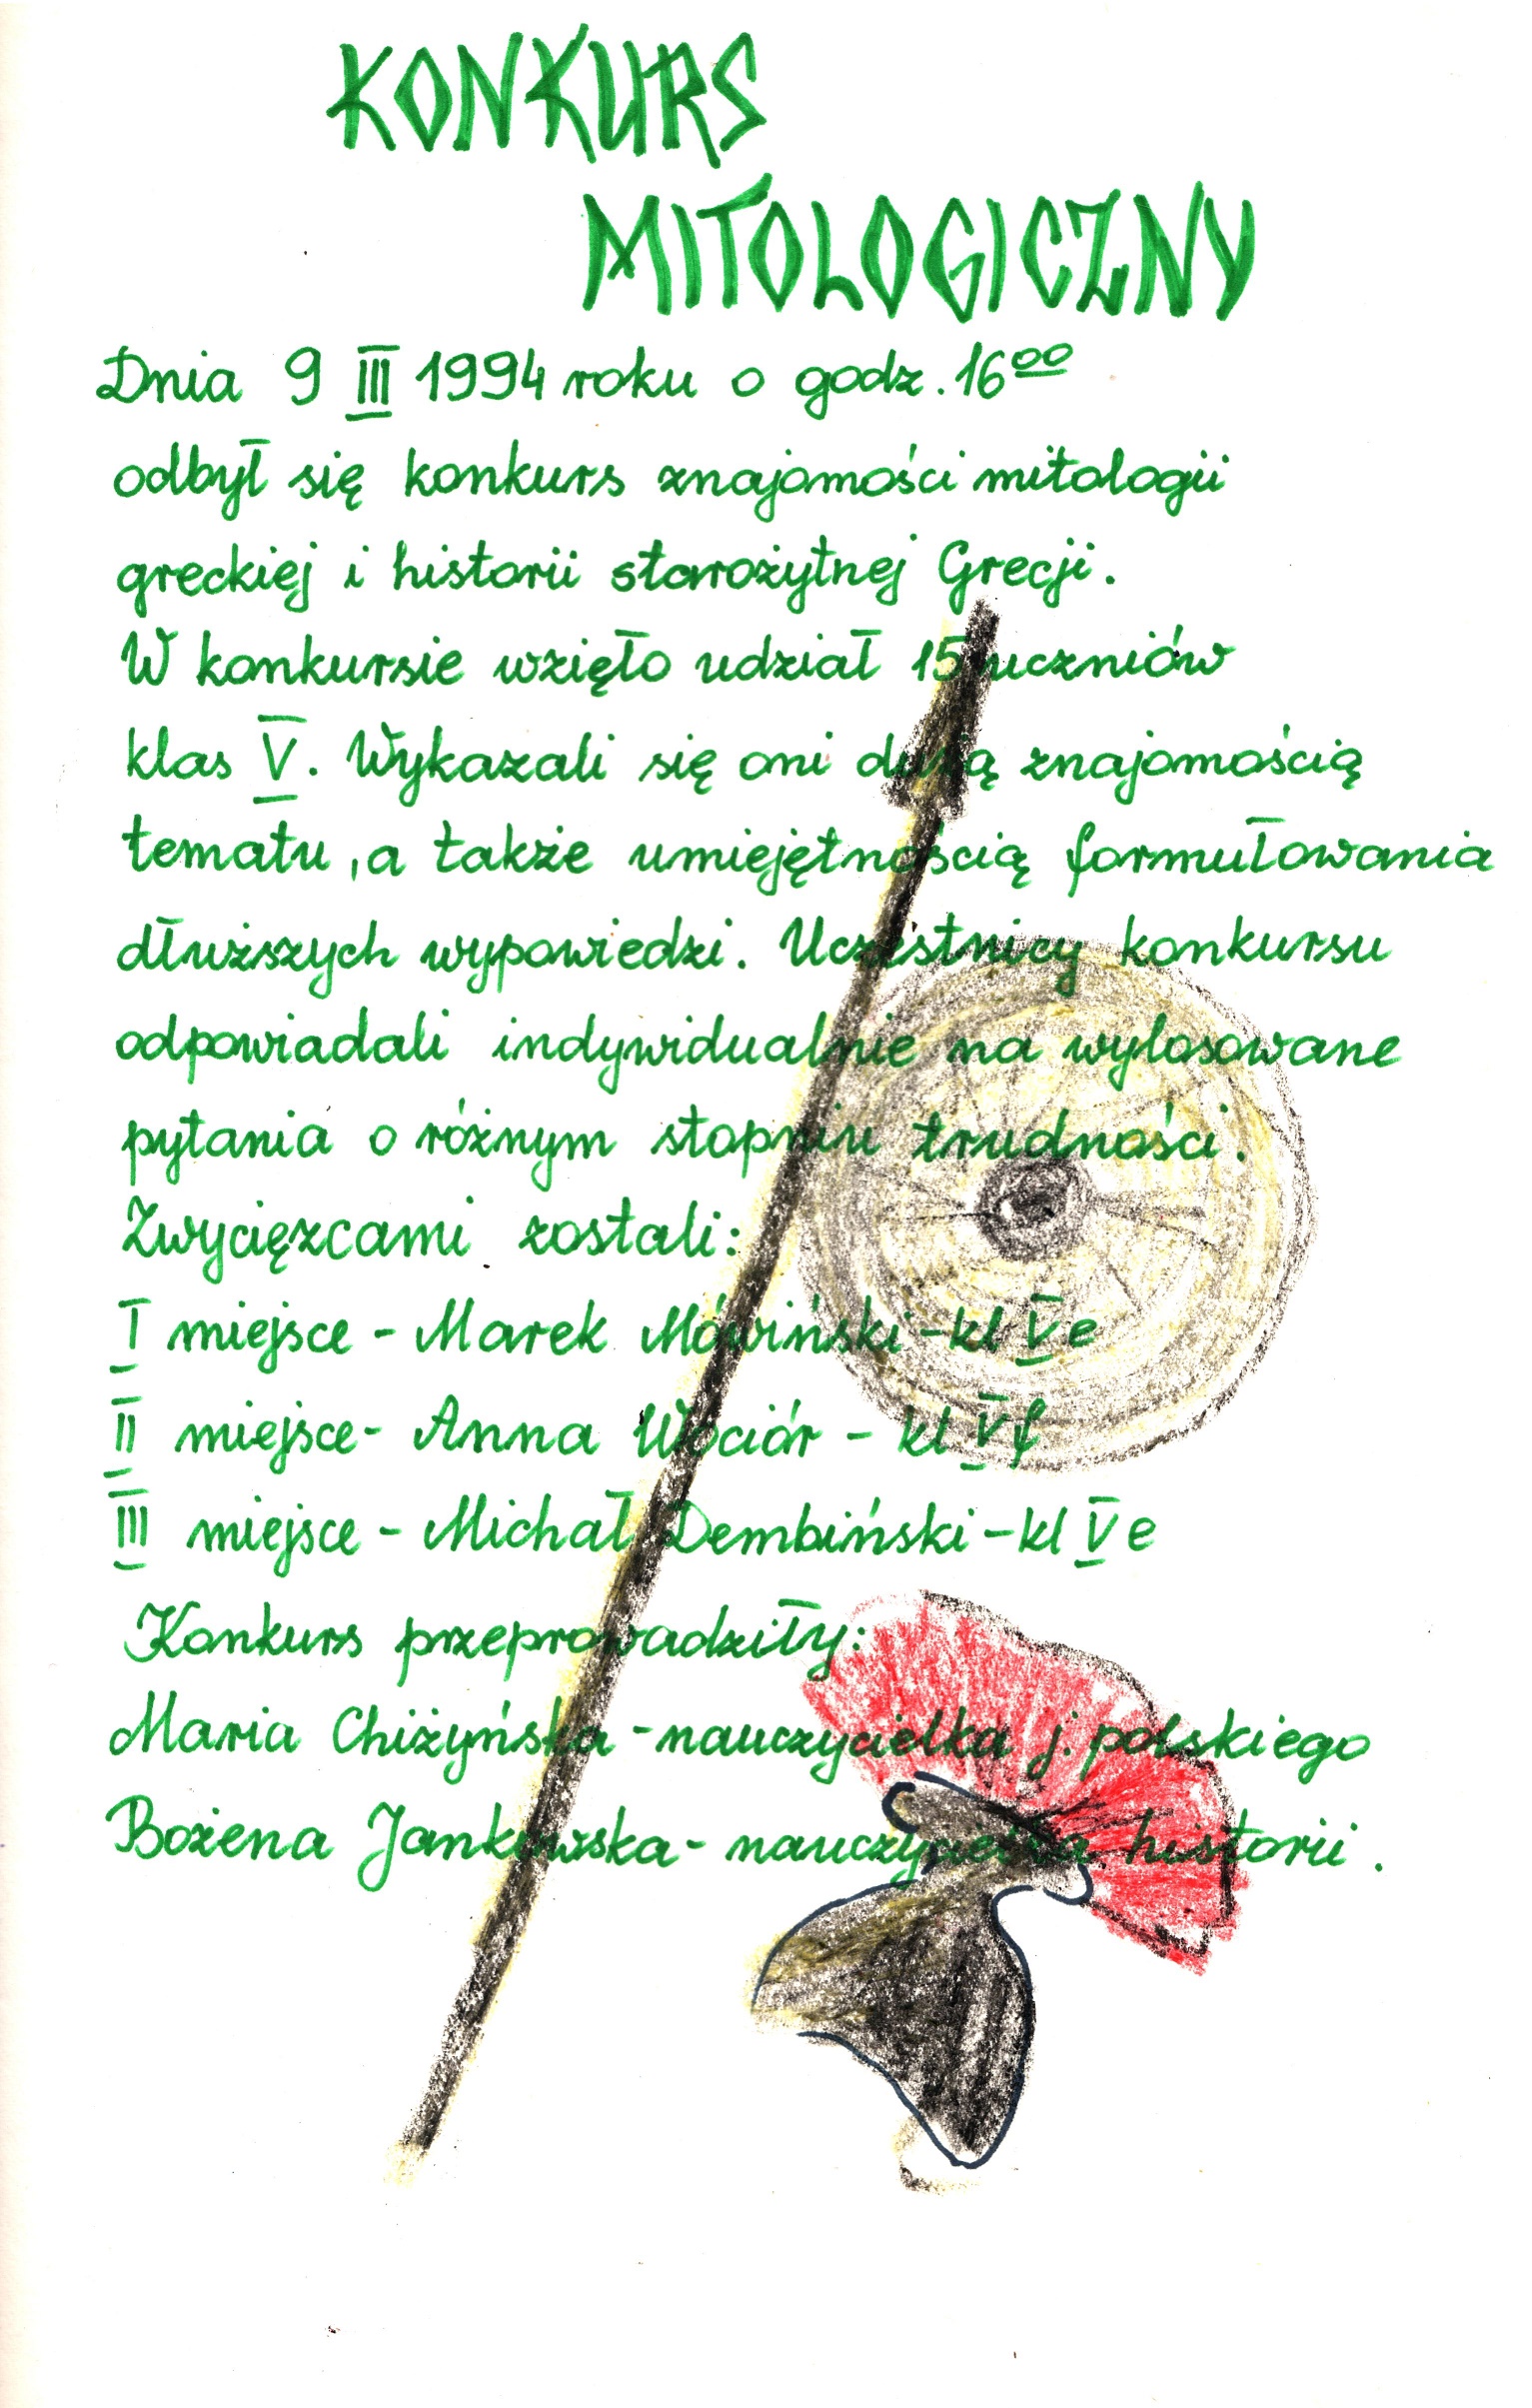 KONKURS
MITOLOGICZNY
Dnia 9 III 1994 roku o godz. 16⁰⁰
odbył się konkurs znajomości mitologii
greckiej i historii starożytnej Grecji.
W konkursie wzięło udział 15 uczniów
klas V. Wykazali się oni dużą znajomością
tematu, a także umiejętnością formułowania
dłuższych wypowiedzi. Uczestnicy konkursu
odpowiadali indywidualnie na wylosowane
pytania o różnym stopniu trudności.
Zwycięzcami zostali:
I miejsce - Marek Mówiński - kl V e
II miejsce - Anna Wociór - kl V f
III miejsce - Michał Dembiński - kl V e
Konkurs przeprowadziły:
Maria Chiżyńska - nauczycielka j. polskiego
Bożena Jankowska - nauczycielka historii.